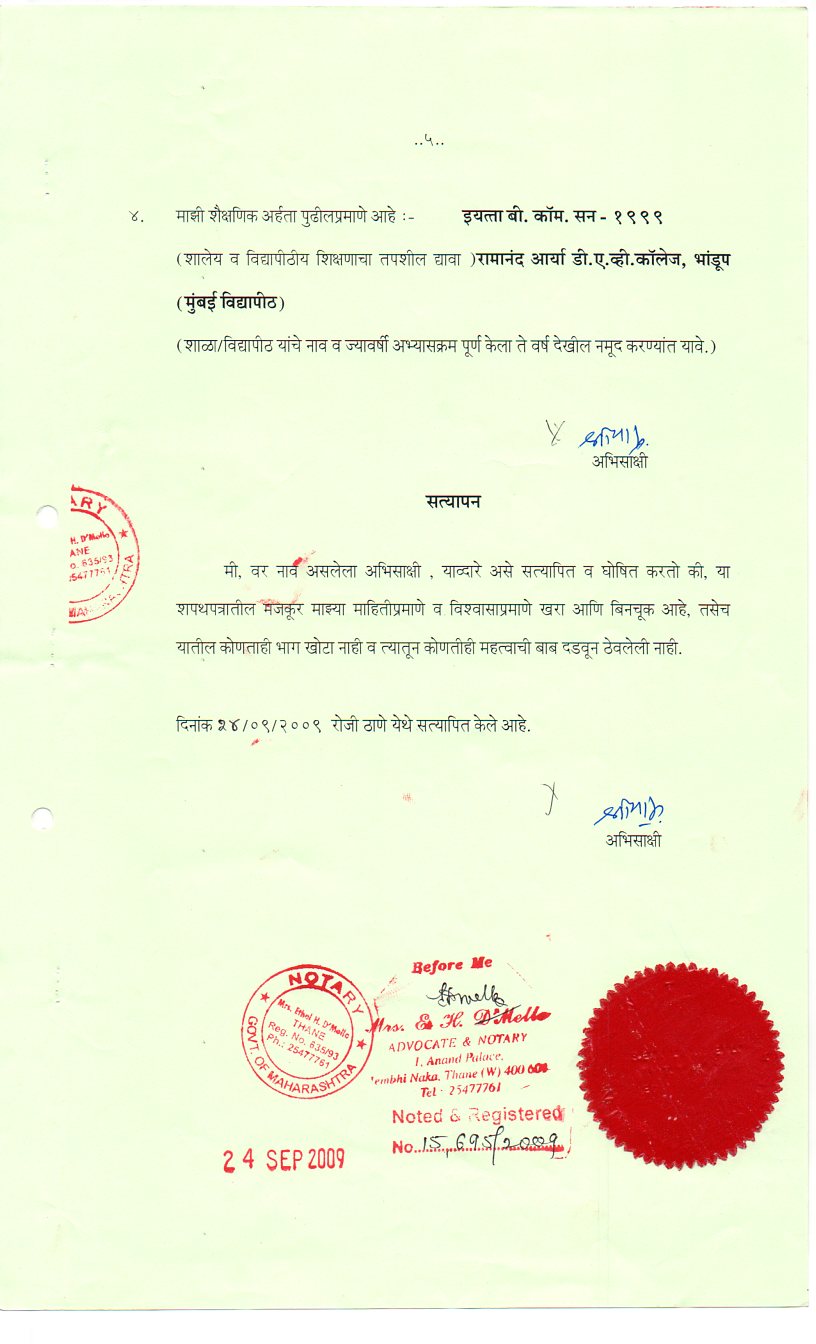 ..५..
४. माझी शैक्षणिक अर्हता पुढीलप्रमाणे आहे :- इयत्ता बी. कॉम. सन - १९९९
(शालेय व विद्यापीठीय शिक्षणाचा तपशील द्यावा )रामानंद आर्या डी.ए.व्ही.कॉलेज, भांडूप
(मुंबई विद्यापीठ)
(शाळा/विद्यापीठ यांचे नाव व ज्यावर्षी अभ्यासक्रम पूर्ण केला ते वर्ष देखील नमूद करण्यांत यावे.)
अभिसाक्षी
सत्यापन
ARY
H. D'Mello
ANE
o. 635/93
25477761
MAHARASHTRA
मी, वर नाव असलेला अभिसाक्षी , याव्दारे असे सत्यापित व घोषित करतो की, या
शपथपत्रातील मजकूर माझ्या माहितीप्रमाणे व विश्वासाप्रमाणे खरा आणि बिनचूक आहे, तसेच
यातील कोणताही भाग खोटा नाही व त्यातून कोणतीही महत्वाची बाब दडवून ठेवलेली नाही.
दिनांक २४/०९/२००९ रोजी ठाणे येथे सत्यापित केले आहे.
अभिसाक्षी
NOTARY
Mrs. Ethel H. D'Mello
THANE
Reg. No. 635/93
Ph.: 25477761
GOVT. OF MAHARASHTRA
Before Me
Mrs. E. H. D'Mello
ADVOCATE & NOTARY
1, Anand Palace,
Tembhi Naka, Thane (W) 400 601
Tel - 25477761
Noted & Registered
No. 15,695/2009
24 SEP 2009